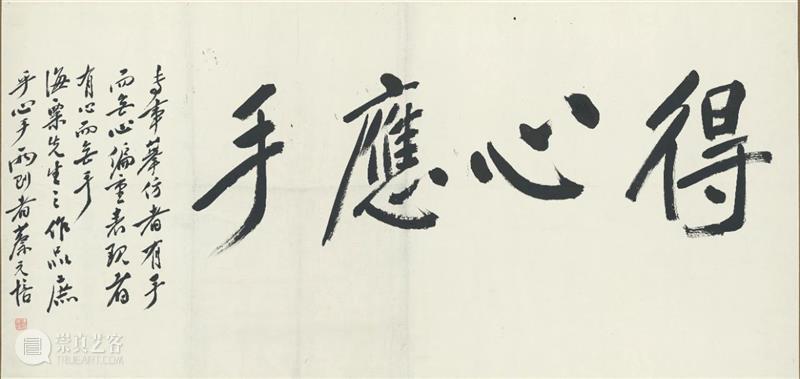 得心應手
專事摹仿者有手
而無心偏重表現者
有心而無手
海粟先生之作品庶
乎心手兩到者蔡元培
崇真艺客
TRUEART.COM